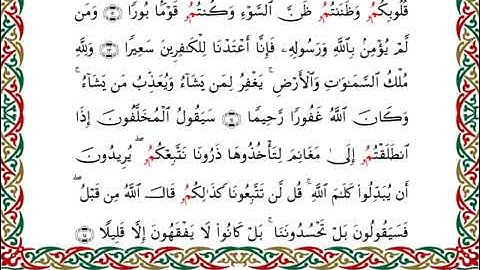 قُلُوبِكُمُۥ وَظَنَنتُمُۥ ظَنَّ ٱلسَّوْءِ وَكُنتُمُۥ قَوْمًۢا بُورًا ۝ وَمَن
لَّمْ يُؤْمِنۢ بِٱللَّهِ وَرَسُولِهِۦ فَإِنَّآ أَعْتَدْنَا لِلْكَٰفِرِينَ سَعِيرًا ۝ وَلِلَّهِ
مُلْكُ ٱلسَّمَٰوَٰتِ وَٱلْأَرْضِ ۚ يَغْفِرُ لِمَن يَشَآءُ وَيُعَذِّبُ مَن يَشَآءُ ۚ
وَكَانَ ٱللَّهُ غَفُورًا رَّحِيمًا ۝ سَيَقُولُ ٱلْمُخَلَّفُونَ إِذَا
ٱنطَلَقْتُمُۥ إِلَىٰ مَغَانِمَ لِتَأْخُذُوهَا ذَرُونَا نَتَّبِعْكُمُۥ ۖ يُرِيدُونَ
أَن يُبَدِّلُوا۟ كَلَٰمَ ٱللَّهِ ۚ قُل لَّن تَتَّبِعُونَا كَذَٰلِكُمُۥ قَالَ ٱللَّهُ مِن قَبْلُ ۖ
فَسَيَقُولُونَ بَلْ تَحْسُدُونَنَا ۚ بَلْ كَانُوا۟ لَا يَفْقَهُونَ إِلَّا قَلِيلًا ۝